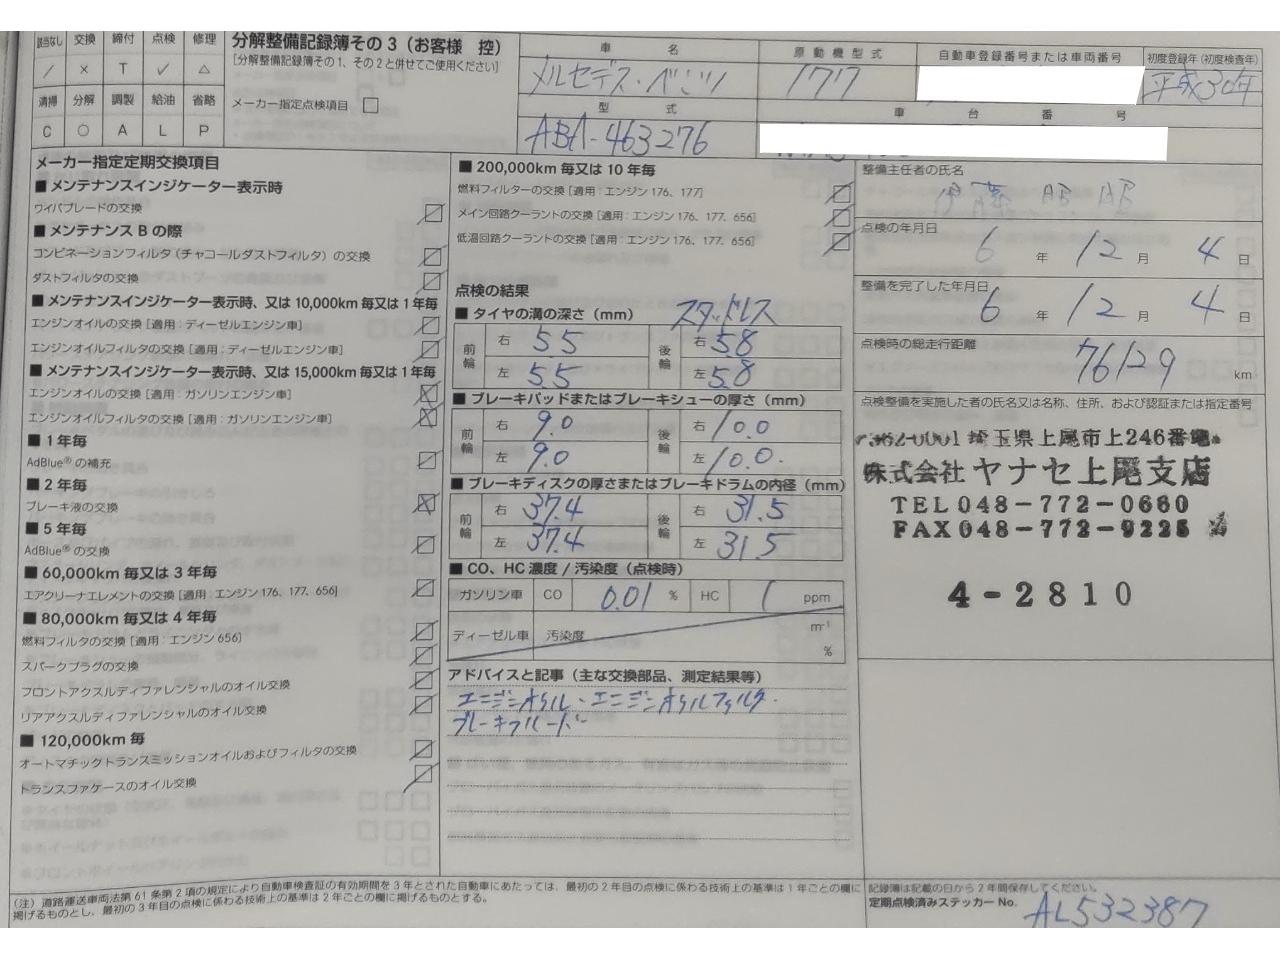 該当なし 交換 締付 点検 修理
/ × T ✓ △
清掃 分解 調製 給油 省略
C ○ A L P
分解整備記録簿その3（お客様 控）
[分解整備記録簿その1、その2と併せてご使用ください]
メーカー指定点検項目 □
車名
メルセデス・ベンツ
原動機型式
177
自動車登録番号または車両番号
初度登録年(初度検査年)
平成30年
型式
ABA-463276
車台番号
メーカー指定定期交換項目
■ メンテナンスインジケーター表示時
ワイパブレードの交換
■ メンテナンス B の際
コンビネーションフィルタ（チャコールダストフィルタ）の交換
ダストフィルタの交換
■ メンテナンスインジケーター表示時、又は 10,000km 毎又は 1 年毎
エンジンオイルの交換 [適用：ディーゼルエンジン車]
エンジンオイルフィルタの交換 [適用：ディーゼルエンジン車]
■ メンテナンスインジケーター表示時、又は 15,000km 毎又は 1 年毎
エンジンオイルの交換 [適用：ガソリンエンジン車]
エンジンオイルフィルタの交換 [適用：ガソリンエンジン車]
■ 1 年毎
AdBlue® の補充
■ 2 年毎
ブレーキ液の交換
■ 5 年毎
AdBlue® の交換
■ 60,000km 毎又は 3 年毎
エアクリーナエレメントの交換 [適用：エンジン 176、177、656]
■ 80,000km 毎又は 4 年毎
燃料フィルタの交換 [適用：エンジン 656]
スパークプラグの交換
フロントアクスルディファレンシャルのオイル交換
リアアクスルディファレンシャルのオイル交換
■ 120,000km 毎
オートマチックトランスミッションオイルおよびフィルタの交換
トランスファケースのオイル交換
■ 200,000km 毎又は 10 年毎
燃料フィルターの交換 [適用：エンジン 176、177]
メイン回路クーラントの交換 [適用：エンジン 176、177、656]
低温回路クーラントの交換 [適用：エンジン 176、177、656]
点検の結果
■ タイヤの溝の深さ（mm） スタッドレス
前輪 右 5.5 後輪 右 5.8
左 5.5 左 5.8
■ ブレーキパッドまたはブレーキシューの厚さ（mm）
前輪 右 9.0 後輪 右 10.0
左 9.0 左 10.0
■ ブレーキディスクの厚さまたはブレーキドラムの内径（mm）
前輪 右 37.4 後輪 右 31.5
左 37.4 左 31.5
■ CO、HC 濃度 / 汚染度（点検時）
ガソリン車 CO 0.01 % HC 1 ppm
ディーゼル車 汚染度 m⁻¹
%
アドバイスと記事（主な交換部品、測定結果等）
エンジンオイル・エンジンオイルフィルタ・
ブレーキフルード
整備主任者の氏名
伊藤
点検の年月日
6 年 12 月 4 日
整備を完了した年月日
6 年 12 月 4 日
点検時の総走行距離
76129 km
点検整備を実施した者の氏名又は名称、住所、および認証または指定番号
〒362-0001 埼玉県上尾市上246番地
株式会社 ヤナセ上尾支店
TEL 048-772-0660
FAX 048-772-9225
4-2810
（注）道路運送車両法第 61 条第 2 項の規定により自動車検査証の有効期間を 3 年とされた自動車にあたっては、最初の 2 年目の点検に係わる技術上の基準は 1 年ごとの欄に
掲げるものとし、最初の 3 年目の点検に係わる技術上の基準は 2 年ごとの欄に掲げるものとする。
記録簿は記載の日から 2 年間保存してください。
定期点検済みステッカー No. AL532387